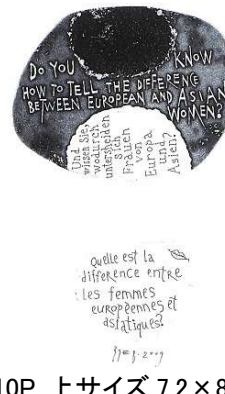 DO YOU KNOW
HOW TO TELL THE DIFFERENCE
BETWEEN EUROPEAN AND ASIAN
WOMEN?
Und
wissen Sie,
wodurch
untersheiden
sich
Frauen
von
Europa
und
Asien?
Quelle est la
différence entre
les femmes
européennes et
asiatiques?
10P 上サイズ 7.2×8